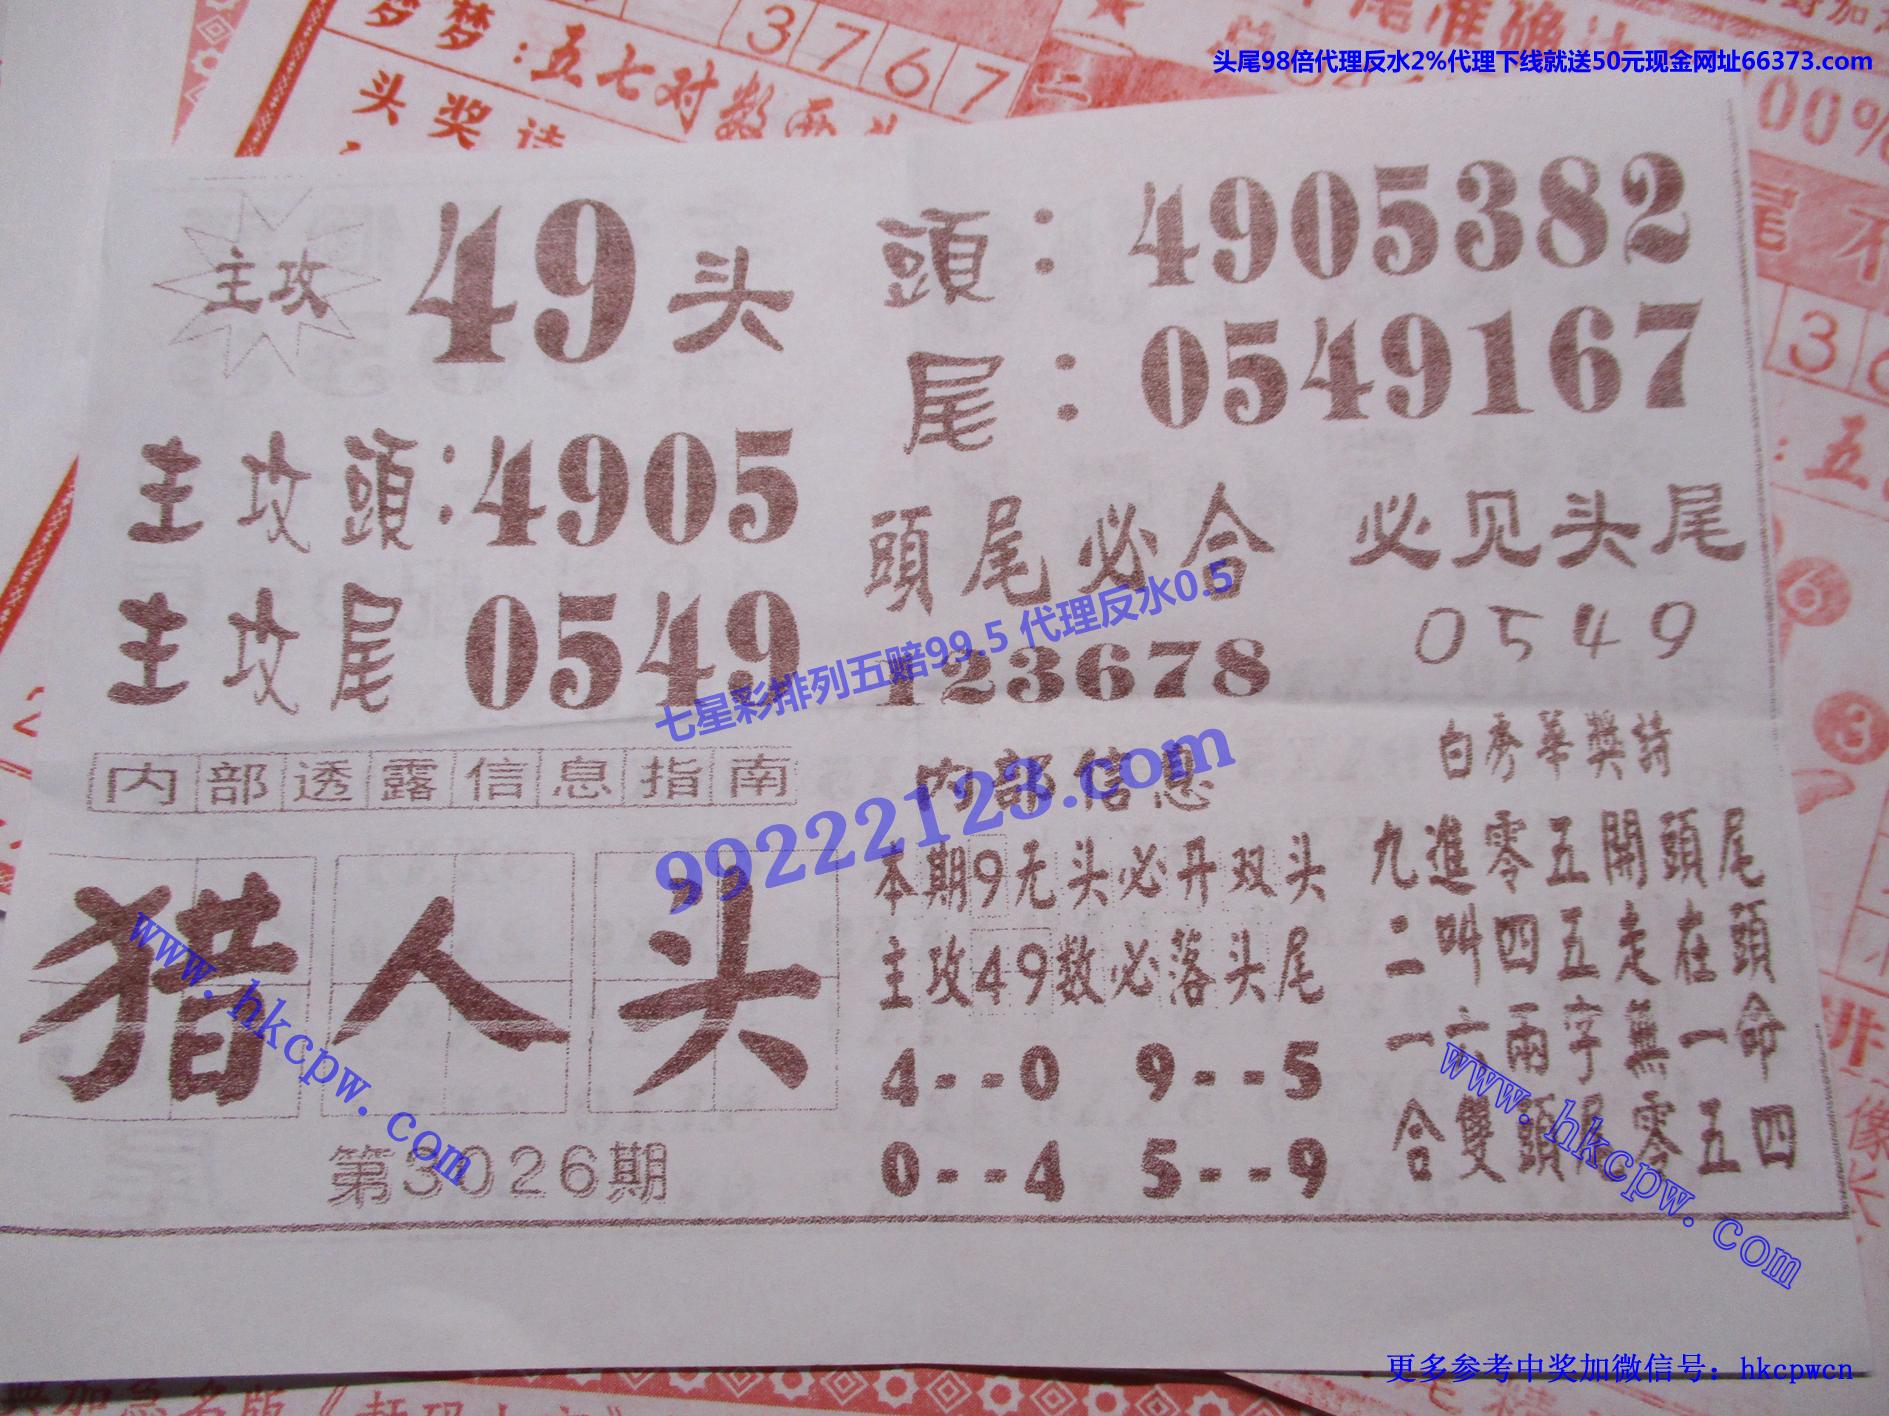 头尾98倍代理反水2%代理下线就送50元现金网址66373.com
3767
梦:五七对数两
头奖诗
00%
主攻
49头
頭:4905382
尾:0549167
主攻頭:4905
主攻尾 0549
頭尾必合
123678
必见头尾
0549
七星彩排列五赔99.5 代理反水0.5
99222123.com
内部透露信息指南
猎人头
第3026期
内部信息
本期9无头必开双头
主攻49数必落头尾
4--0 9--5
0--4 5--9
白秀华獎詩
九進零五開頭尾
二叫四五走在頭
一六兩字無一命
合雙頭尾零五四
www.hkcpw.com
www.hkcpw.com
更多参考中奖加微信号：hkcpwcn